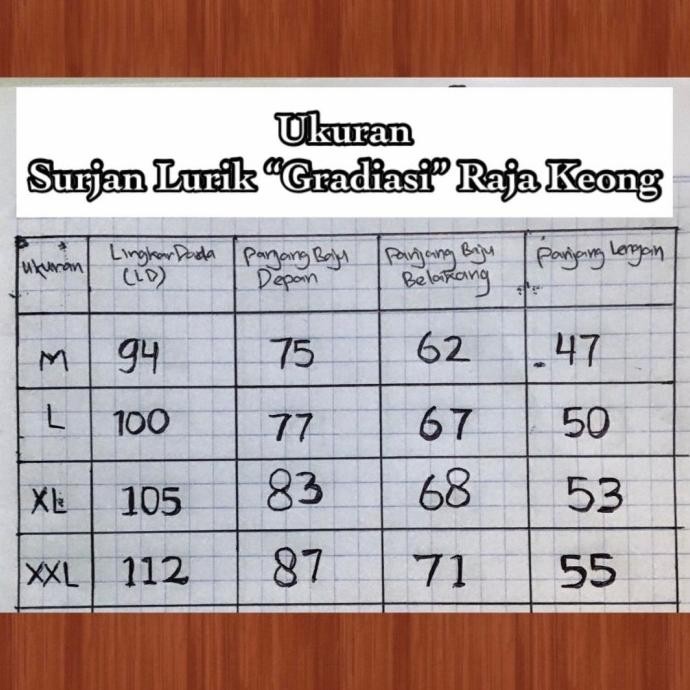 Ukuran
Surjan Lurik “Gradiasi” Raja Keong
Ukuran Lingkar Dada (LD) Panjang Baju Depan Panjang Baju Belakang Panjang Lengan
M 94 75 62 47
L 100 77 67 50
XL 105 83 68 53
XXL 112 87 71 55